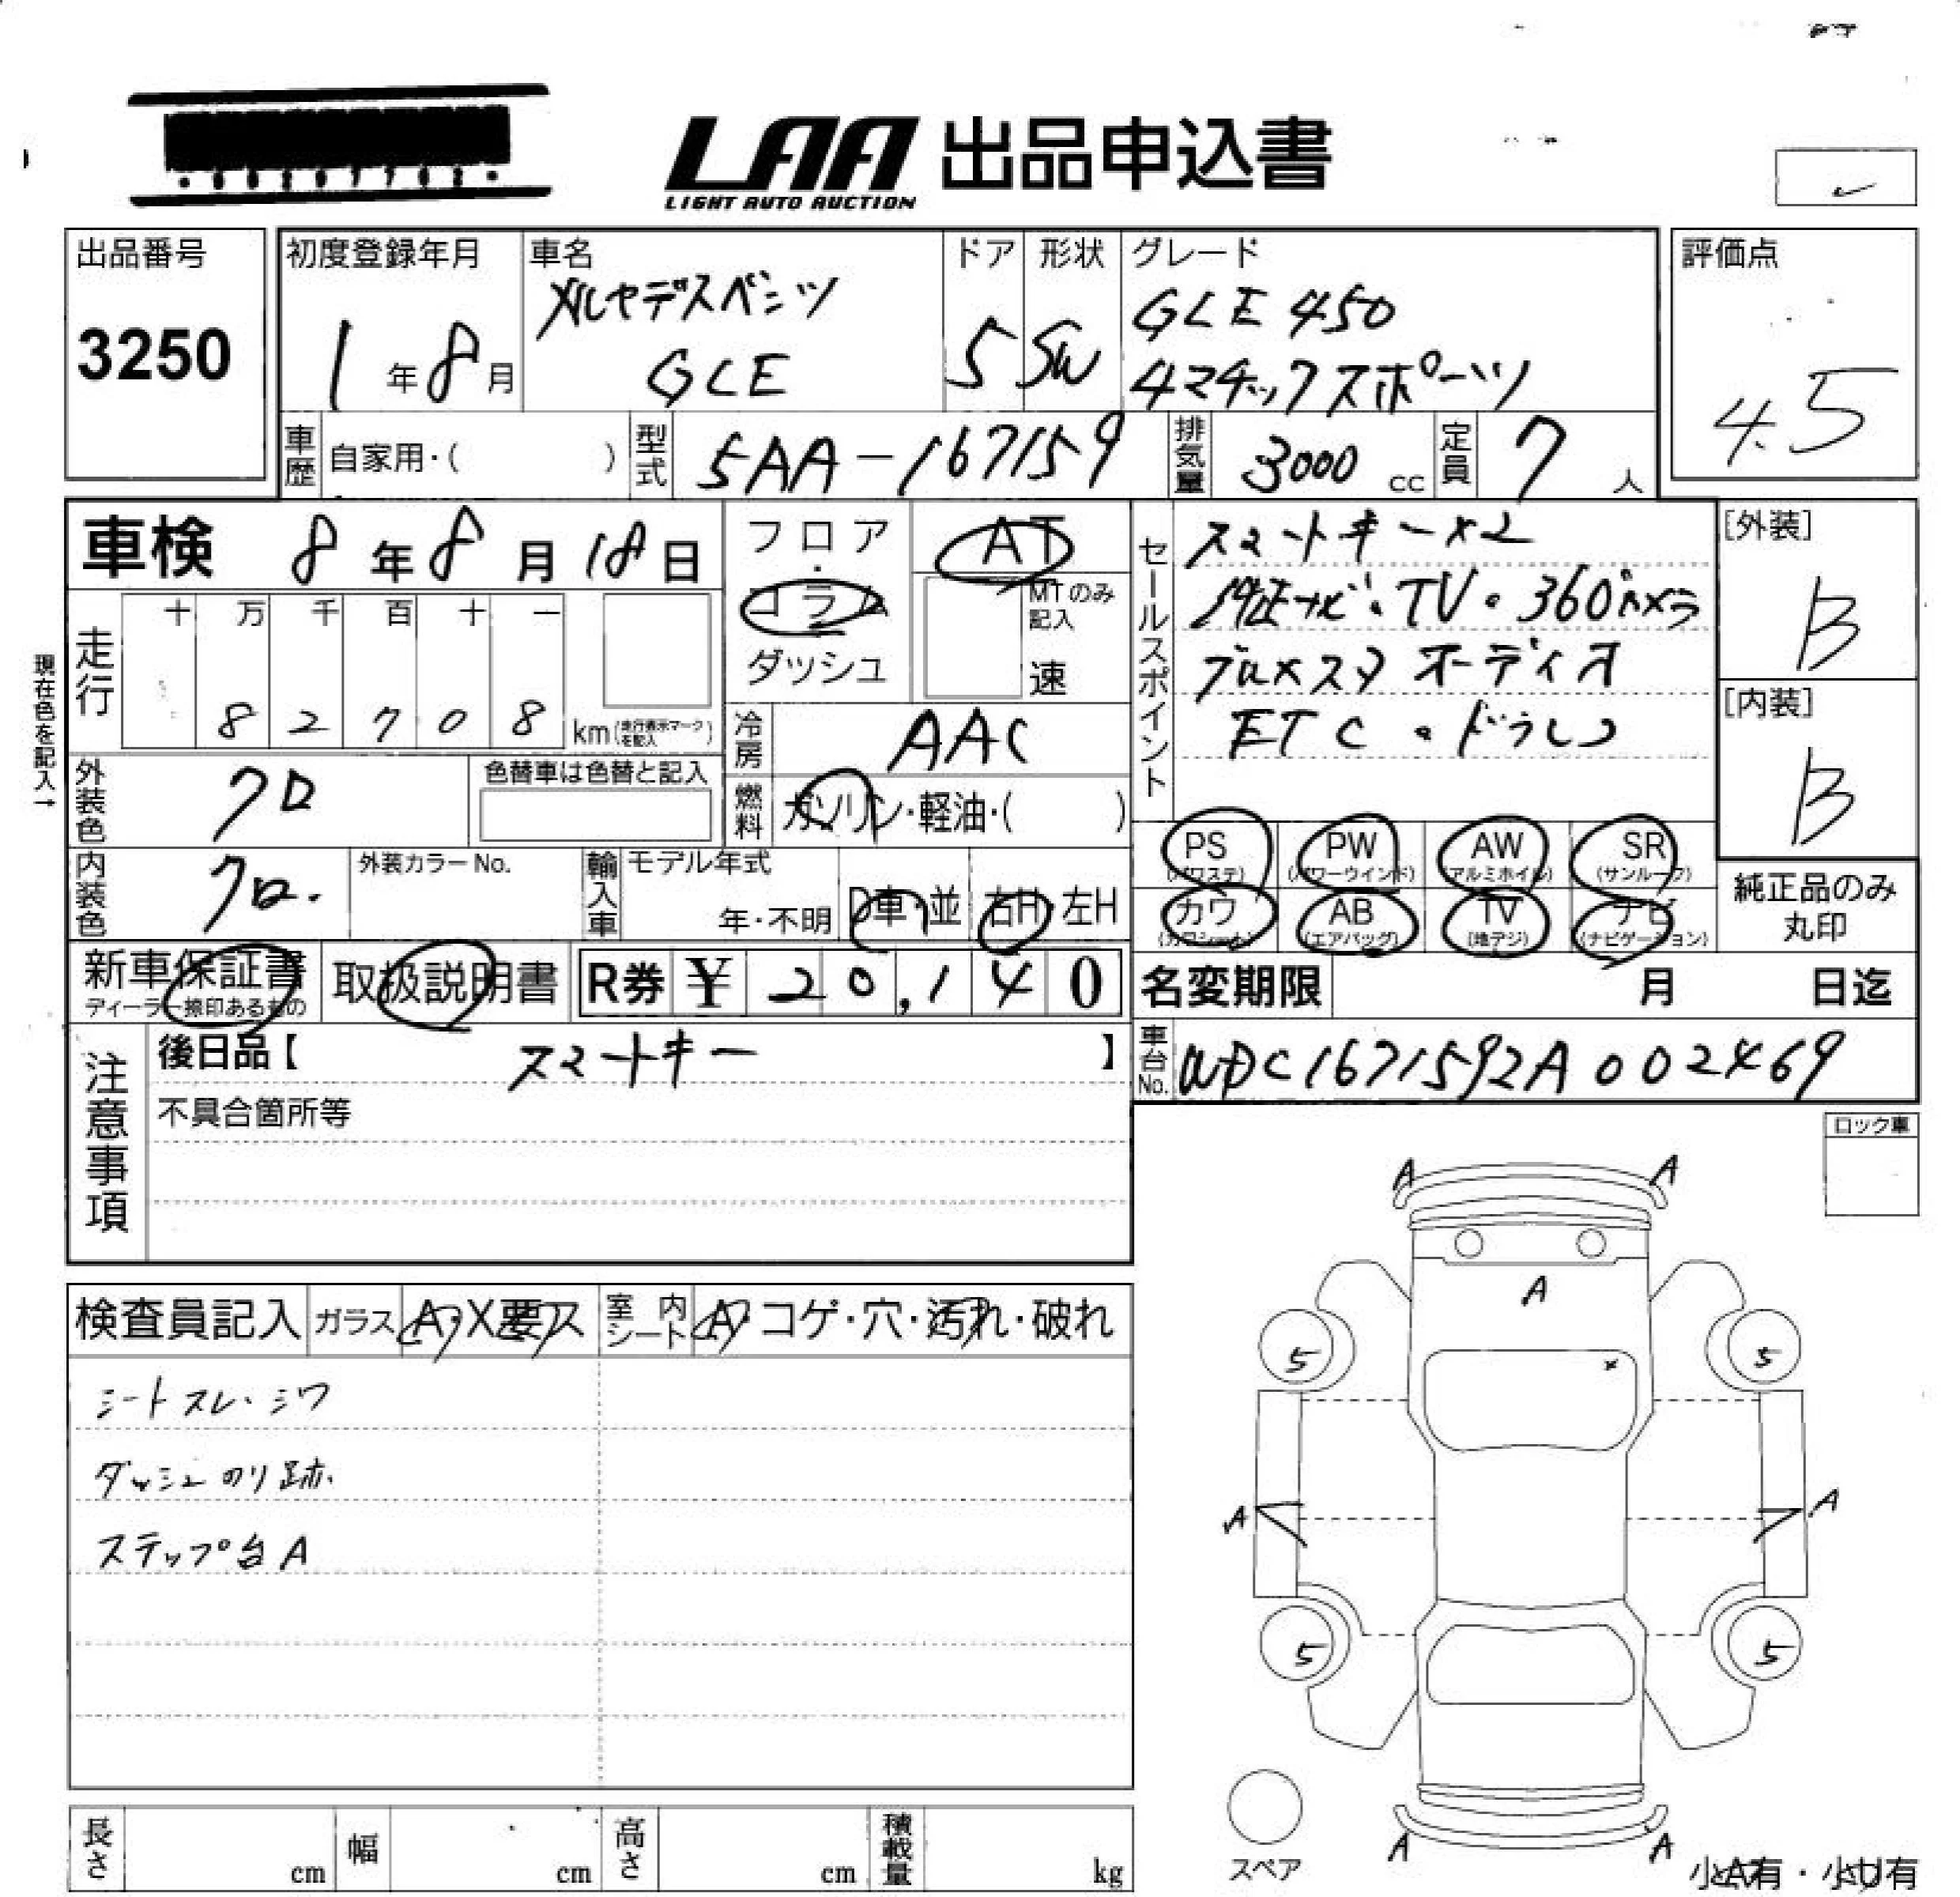 LAA 出品申込書
LIGHT AUTO AUCTION
出品番号
3250
初度登録年月
1年8月
車名
メルセデスベンツ
GLE
ドア
5
形状
SW
グレード
GLE 450
4マチックスポーツ
評価点
4.5
車歴 自家用・( )
型式 5AA-167159
排気量 3000 cc
定員 7 人
車検 8年8月18日
フロア・コラム
ダッシュ
AT
MTのみ記入
速
セールスポイント
スマートキー×2
純正ナビ・TV・360°カメラ
ブルメスタ オーディオ
ETC・ドラレコ
[外装]
B
[内装]
B
現在色を記入→
走行
十 万 千 百 十 一
8 2 7 0 8 km(走行表示マークを記入)
冷房 AAC
燃料 ガソリン・軽油・( )
外装色 クロ
色替車は色替と記入
内装色 クロ.
外装カラーNo.
輸入車
モデル年式
年・不明
D車・並
右H・左H
PS (パワステ)
PW (パワーウインド)
AW (アルミホイル)
SR (サンルーフ)
カワ (カワシート)
AB (エアバッグ)
TV (地デジ)
ナビ (ナビゲーション)
純正品のみ
丸印
新車保証書
ディーラー捺印あるもの
取扱説明書
R券 ¥ 20,140
名変期限 月 日迄
注意事項
後日品【 スマートキー 】
不具合箇所等
車台No. WDC1671592A002469
ロック車
検査員記入
ガラス A・X要ス
室内シート A・コゲ・穴・汚れ・破れ
シートスレ・シワ
ダッシュのり跡.
ステップ台A
A A
A
5 × 5
A A
5 5
A A
スペア
長さ cm
幅 cm
高さ cm
積載量 kg
小A有・小U有